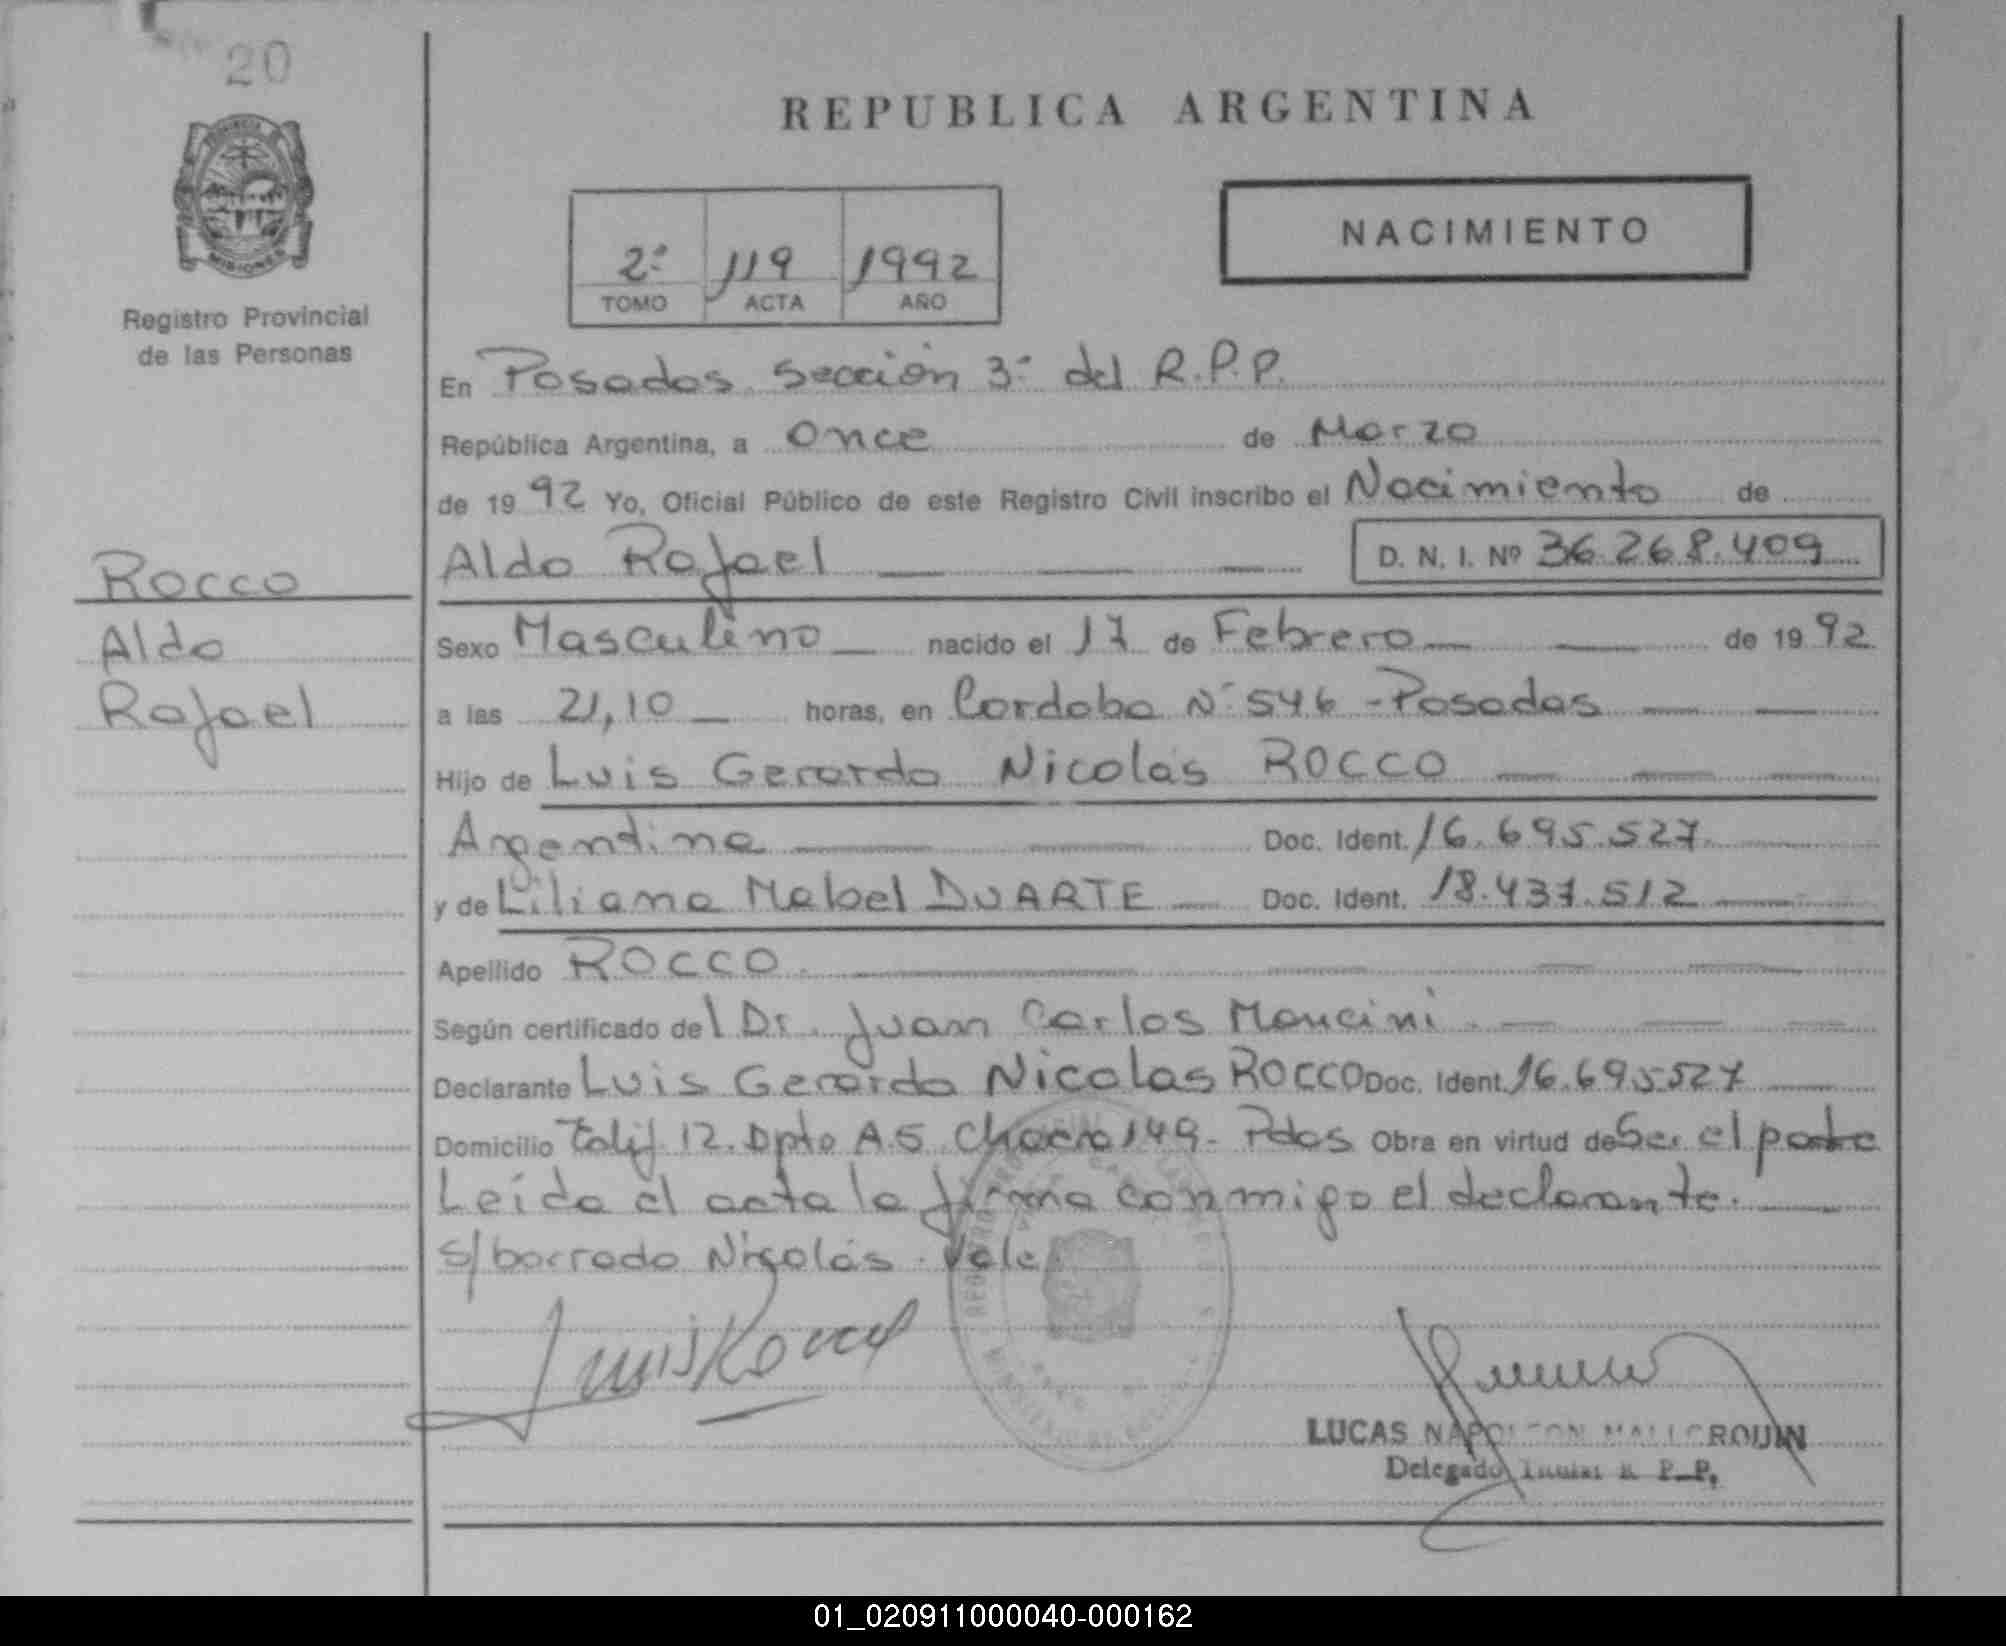 20
REPUBLICA ARGENTINA
NACIMIENTO
2º 119 1992
TOMO ACTA AÑO
MISIONES
Registro Provincial
de las Personas
En Posadas Sección 3º del R.P.P.
República Argentina, a Once de Marzo
de 1992 Yo, Oficial Público de este Registro Civil inscribo el Nacimiento de
Aldo Rafael D. N. I. Nº 36.268.409
Rocco
Aldo
Rafael
Sexo Masculino nacido el 17 de Febrero de 1992
a las 21,10 horas, en Cordoba Nº 546 - Posadas
Hijo de Luis Gerardo Nicolás ROCCO
Argentina Doc. Ident. 16.695.527
y de Liliana Mabel DUARTE Doc. Ident. 18.437.512
Apellido ROCCO
Según certificado del Dr. Juan Carlos Mancini
Declarante Luis Gerardo Nicolas ROCCO Doc. Ident. 16.695.527
Domicilio 12. Dpto A5 Chacra 149 - Pdas Obra en virtud de Ser el padre
Leída el acta la firma conmigo el declarante.
s/borrado Nicolás. Vale.
LUCAS NAPOLEON MALLORQUIN
Delegado Titular R. P. P.
01_020911000040-000162